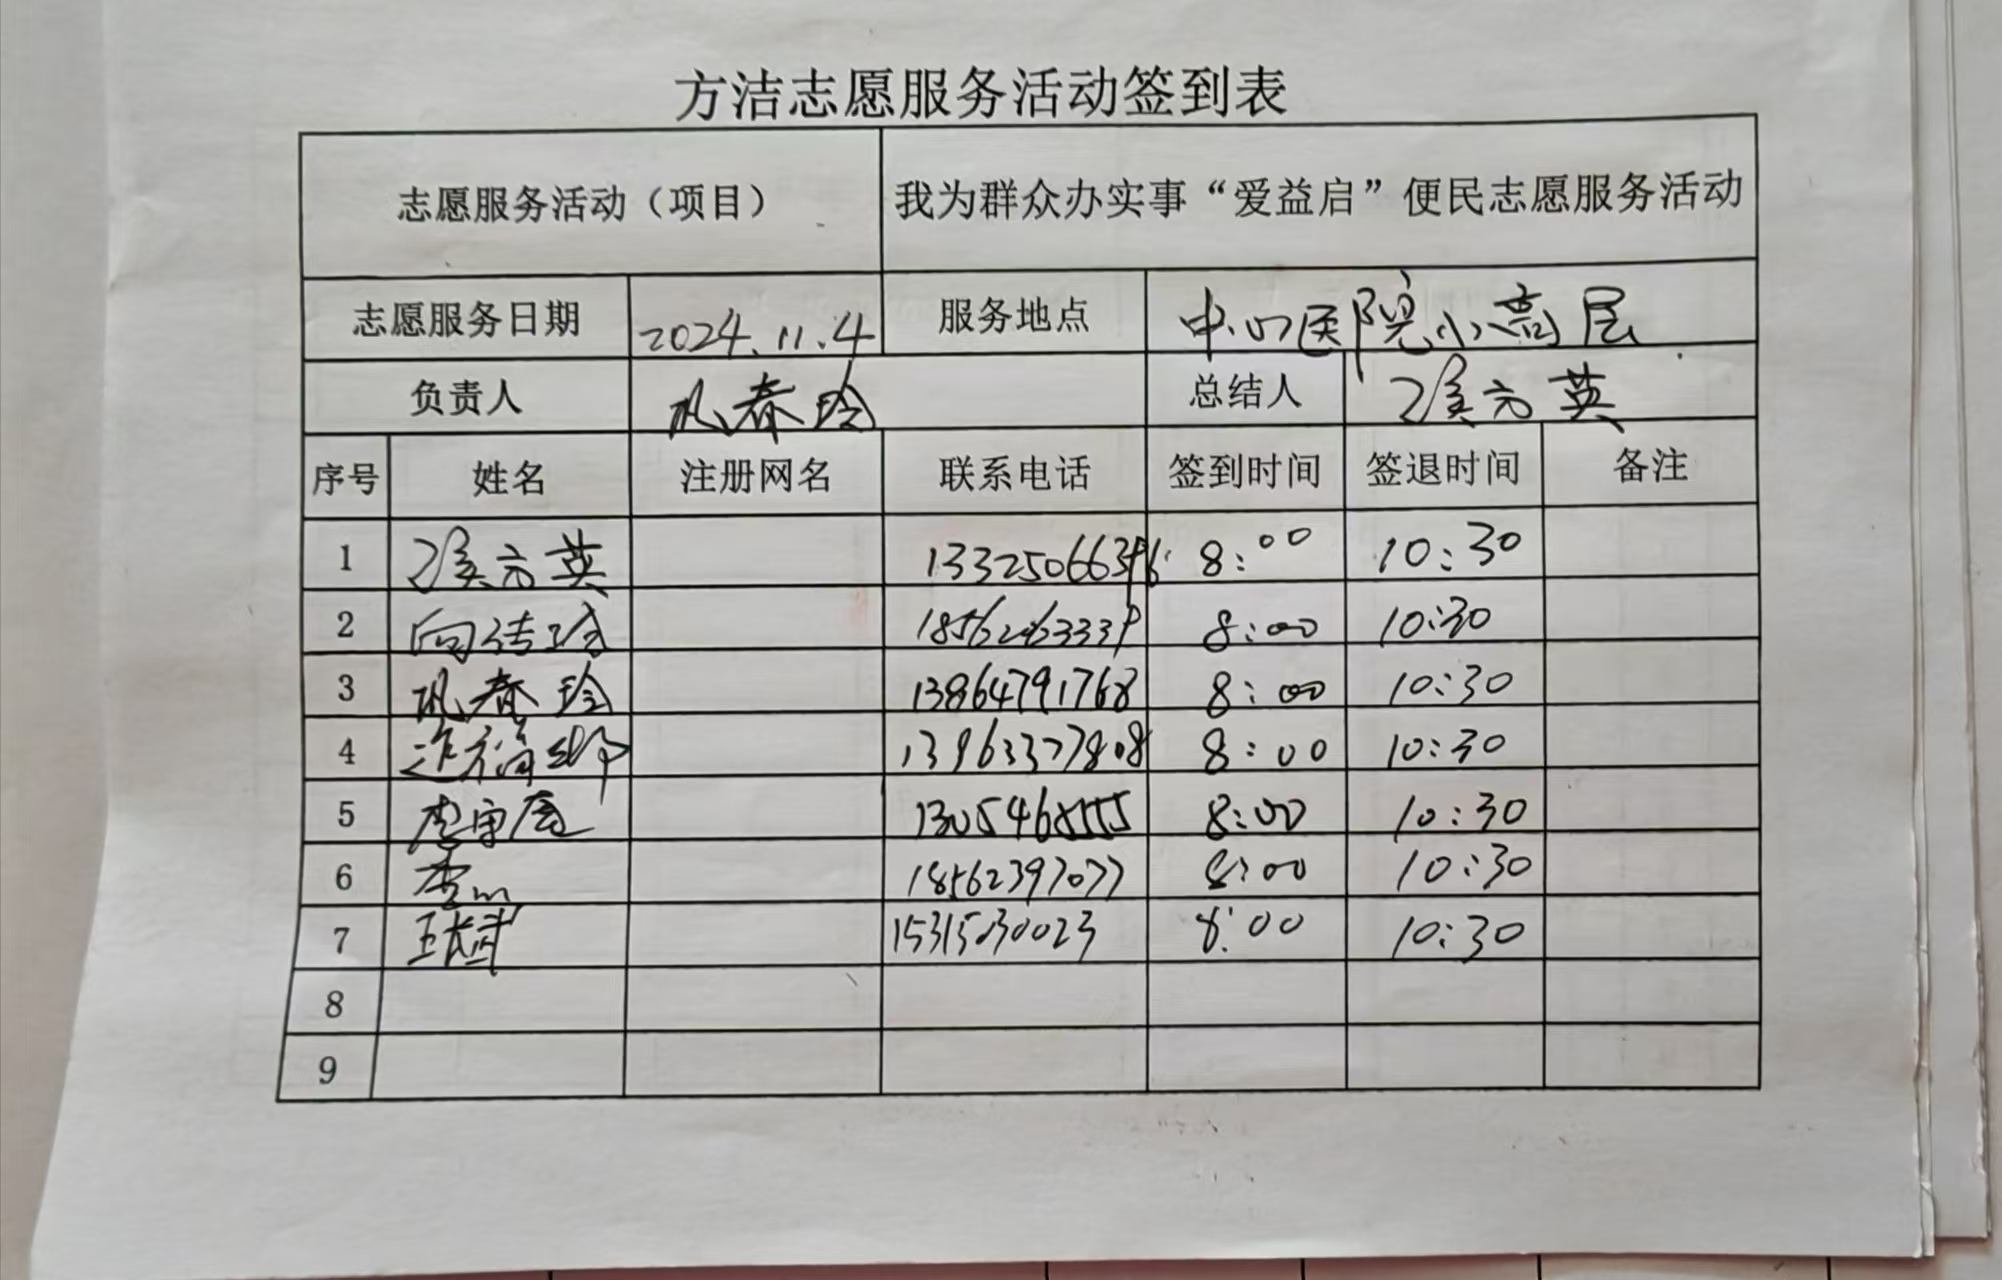 方洁志愿服务活动签到表
志愿服务活动（项目） 我为群众办实事“爱益启”便民志愿服务活动
志愿服务日期 2024.11.4 服务地点 中心医院小高层
负责人 巩春玲 总结人 侯方英
序号 姓名 注册网名 联系电话 签到时间 签退时间 备注
1 侯方英 8:00 10:30
2 8:00 10:30
3 巩春玲 13864791768 8:00 10:30
4 8:00 10:30
5 8:00 10:30
6 18562397077 8:00 10:30
7 8:00 10:30
8
9